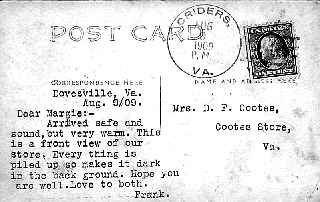 POST CARD
CRIDERS,
AUG
1909
P.M.
VA.
CORRESPONDENCE HERE
NAME AND ADDRESS HERE
Dovesville, Va.
Aug. 9/09.
Dear Margie:-
Arrived safe and
sound,but very warm. This
is a front view of our
store. Every thing is
piled up so makes it dark
in the back ground. Hope you
are well.Love to both.
Frank.
Mrs. D. F. Cootes,
Cootes Store,
Va.